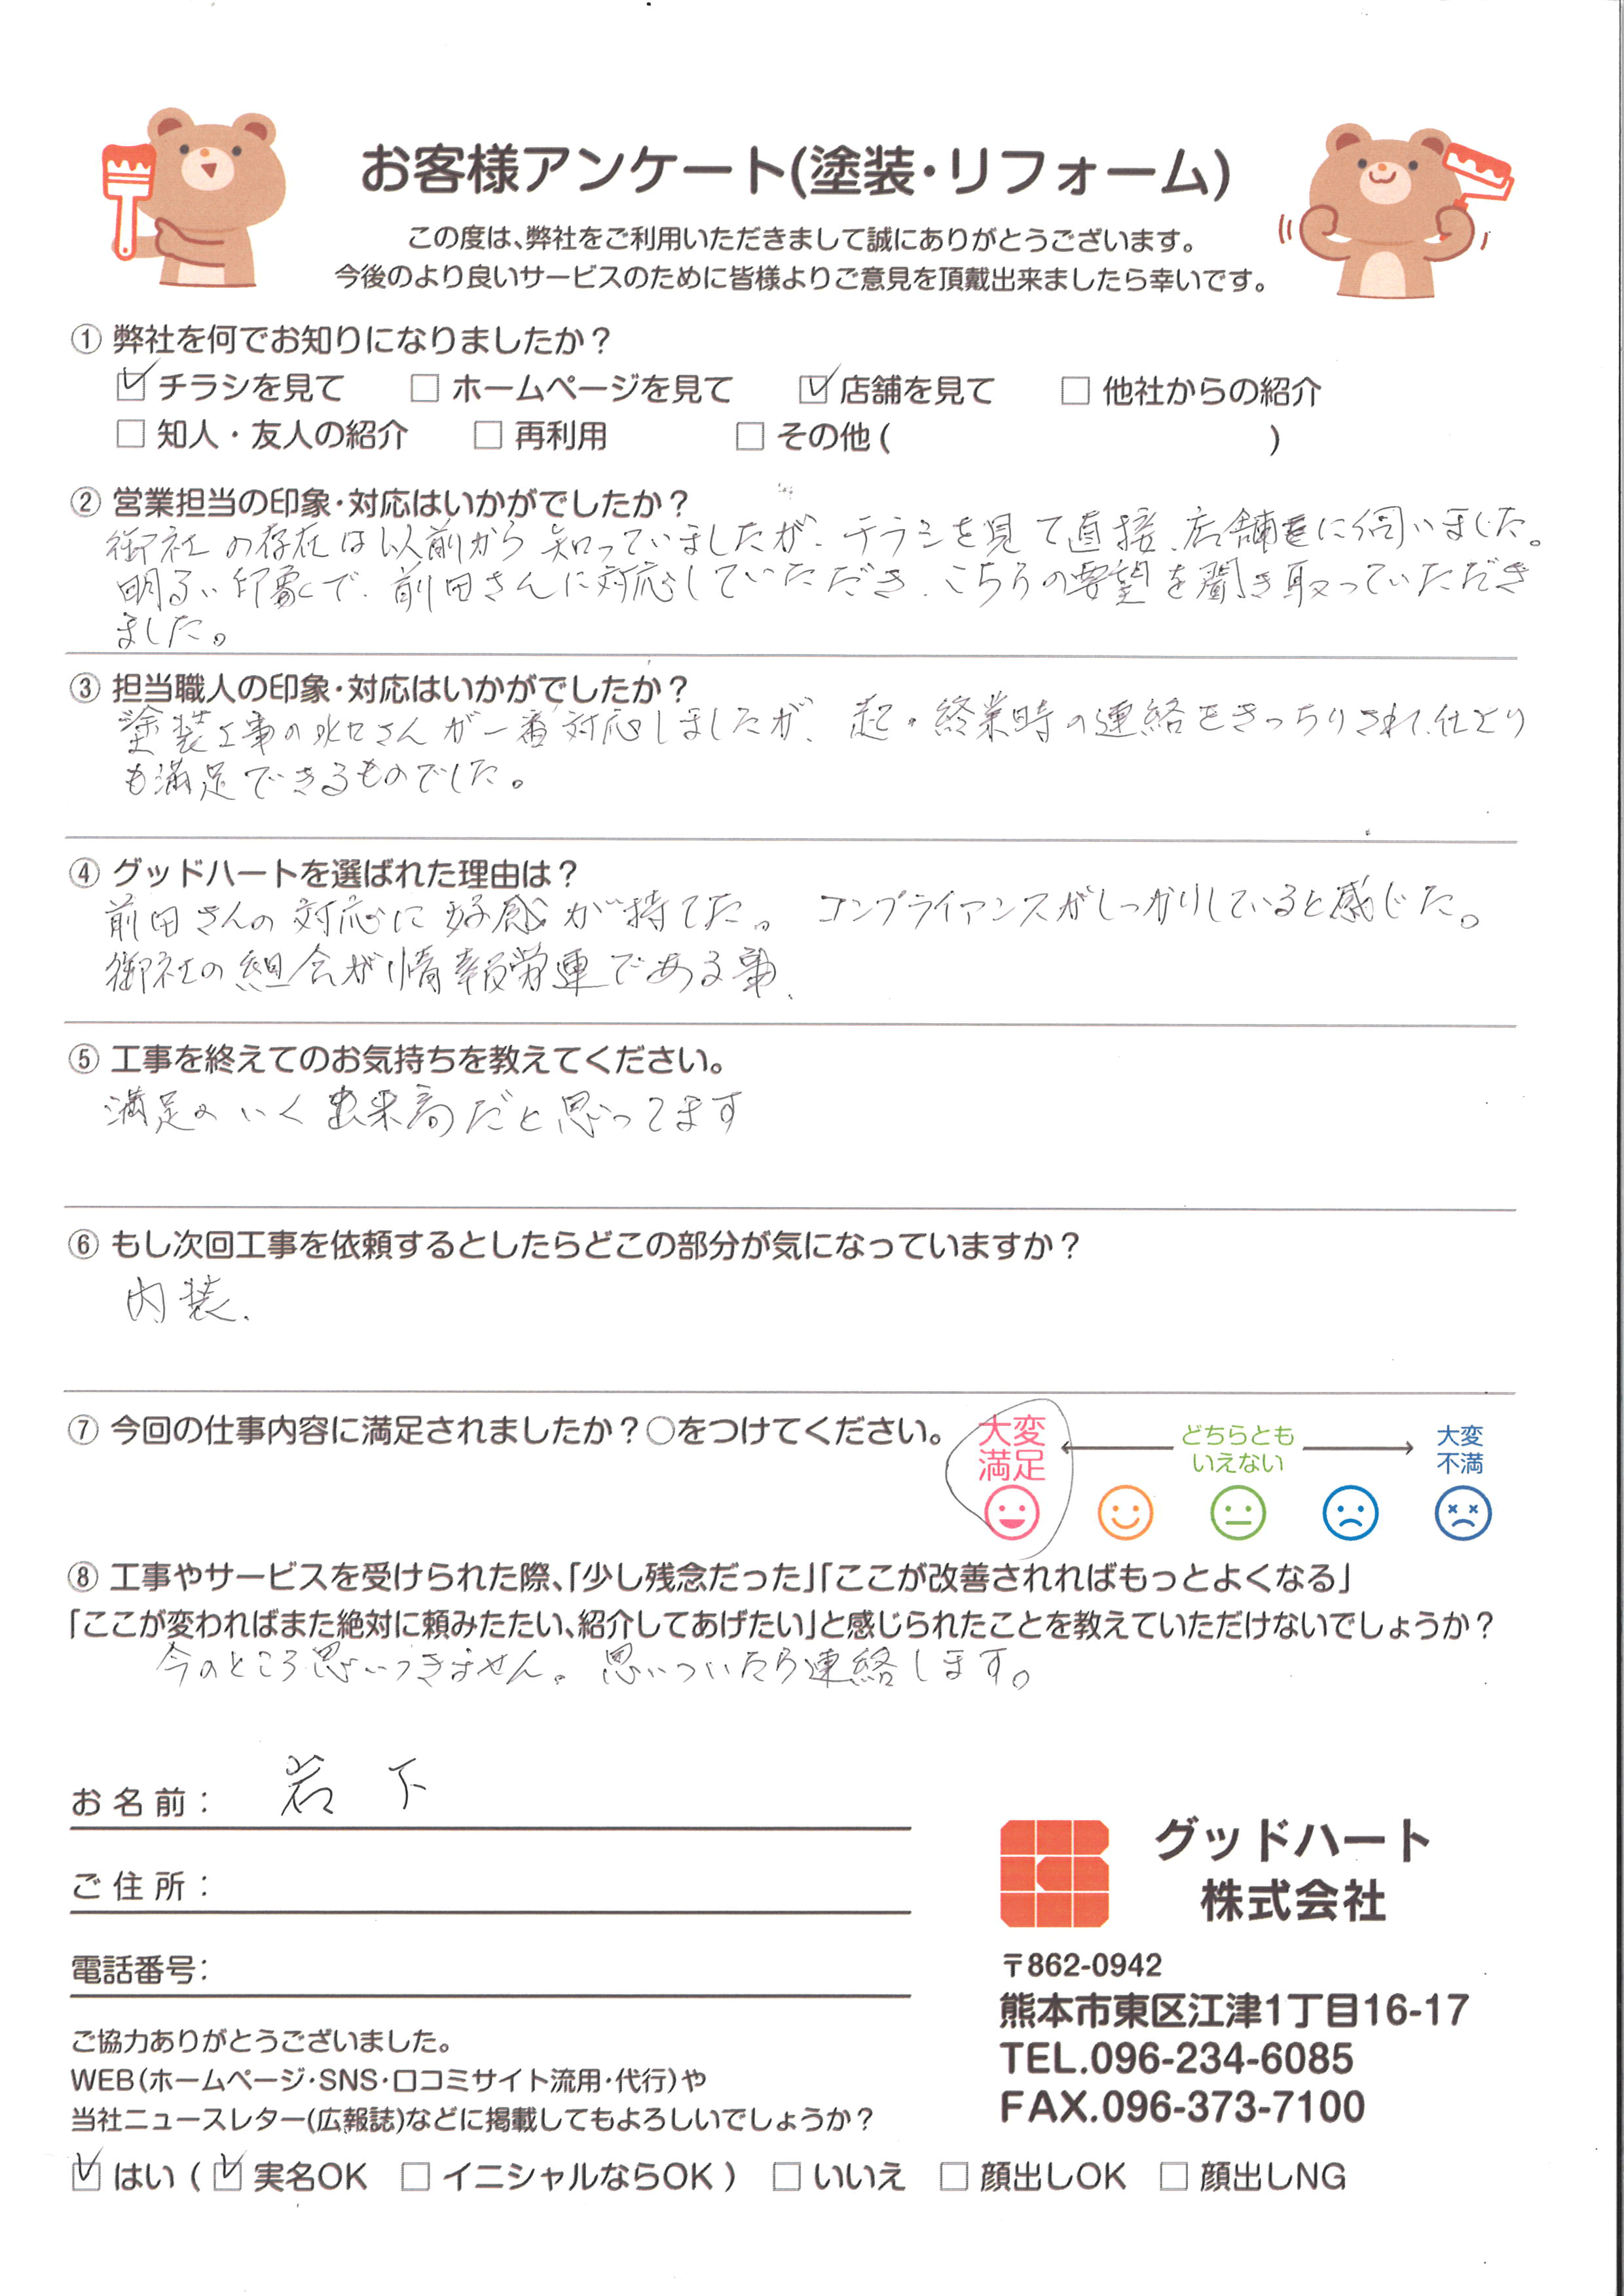 お客様アンケート(塗装・リフォーム)
この度は、弊社をご利用いただきまして誠にありがとうございます。
今後のより良いサービスのために皆様よりご意見を頂戴出来ましたら幸いです。
① 弊社を何でお知りになりましたか？
☑ チラシを見て □ ホームページを見て ☑ 店舗を見て □ 他社からの紹介
□ 知人・友人の紹介 □ 再利用 □ その他 ( )
② 営業担当の印象・対応はいかがでしたか？
御社の存在は以前から知っていましたが、チラシを見て直接、店舗に伺いました。
明るい印象で、前田さんに対応していただき、こちらの要望を聞き取っていただき
ました。
③ 担当職人の印象・対応はいかがでしたか？
塗装工事の さんが一番対応しましたが、起・終業時の連絡をきっちりされ、仕上り
も満足できるものでした。
④ グッドハートを選ばれた理由は？
前田さんの対応に好感が持てた。 コンプライアンスがしっかりしていると感じた。
御社の組合が情報労連である事、
⑤ 工事を終えてのお気持ちを教えてください。
満足のいく出来高だと思ってます
⑥ もし次回工事を依頼するとしたらどこの部分が気になっていますか？
内装、
⑦ 今回の仕事内容に満足されましたか？○をつけてください。
大変
満足
どちらとも
いえない
大変
不満
⑧ 工事やサービスを受けられた際、「少し残念だった」「ここが改善されればもっとよくなる」
「ここが変わればまた絶対に頼みたたい、紹介してあげたい」と感じられたことを教えていただけないでしょうか？
今のところ思いつきません。思いついたら連絡します。
お名前： 岩下
ご住所：
電話番号：
ご協力ありがとうございました。
WEB(ホームページ・SNS・口コミサイト流用・代行)や
当社ニュースレター(広報誌)などに掲載してもよろしいでしょうか？
☑ はい ( ☑ 実名OK □ イニシャルならOK ) □ いいえ □ 顔出しOK □ 顔出しNG
グッドハート
株式会社
〒862-0942
熊本市東区江津1丁目16-17
TEL.096-234-6085
FAX.096-373-7100